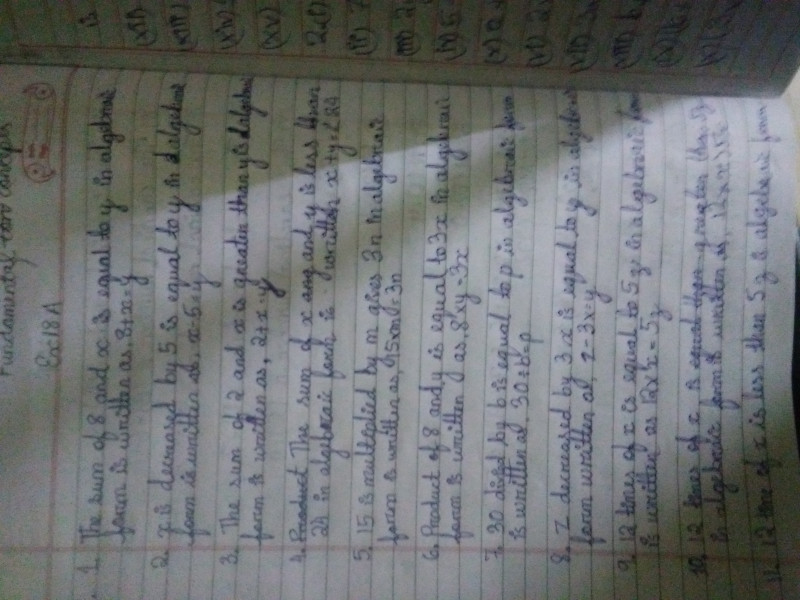 Fundamental
Ex-18A
1. The sum of 8 and x is equal to y in algebraic
form is written as 8+x=y
2. x is decreased by 5 is equal to y in algebraic
form is written as x-5=y
3. The sum of 2 and x is greater than y is algebraic
form is written as, 2+x
4. Product The sum of x and y is less than
24 in algebraic form is written x+y<24
5. 15 is multiplied by m gives 3n in algebraic
form is written as, 15xm=3n
6. Product of 8 and y is equal to 3x in algebraic
form is written as 8 xy=3x
7. 30 by b is equal to p in algebraic form
is written as, 30÷b=p
8. z decreased by 3x is equal to y in algebraic
form written as, z-3x=y
9. 12 times of x is equal to 5z in algebraic form
is written as 12xx=5z
10. 12 times of x is greater than 5z
in algebraic form is written as, 12xx>5z
11. 12 of x is less than 5z algebraic form
is
(xv)
2.
(xi)